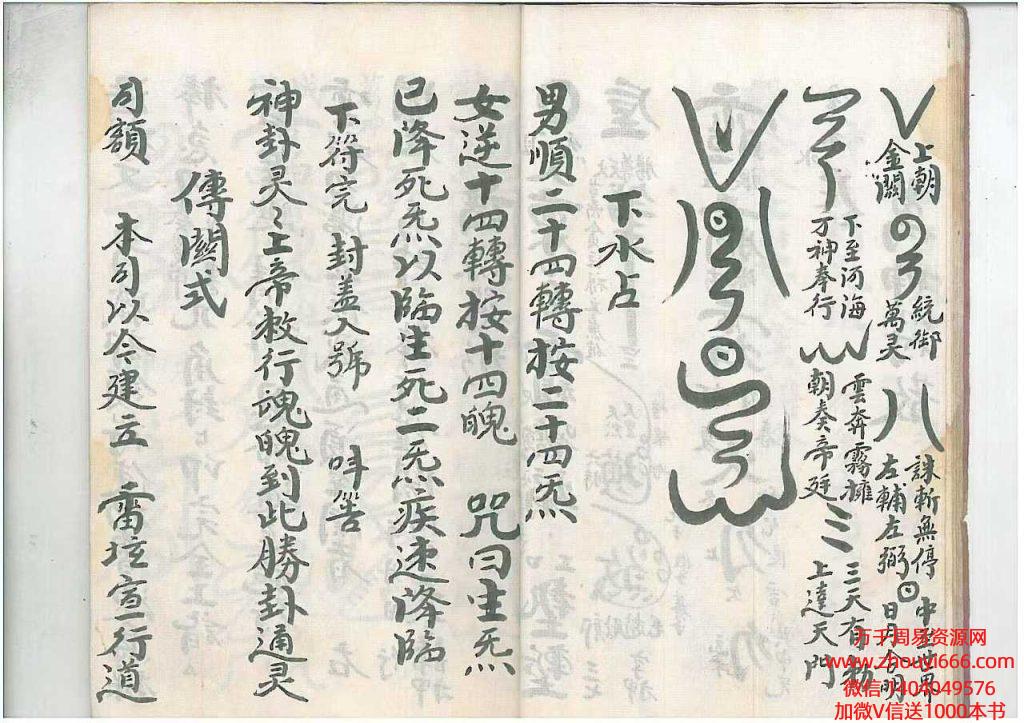 上朝
金闕
統御
萬灵
誅斬無停
左輔左弼
中至世界
日月合明
下至河海
万神奉行
雲奔霧擁
朝奏帝廷
三天有勅
上達天門
下水占
男順二十四轉按二十四炁
女逆十四轉按十四魄 咒曰生炁
已降死炁以臨生死二炁疾速降臨
下符完封盖入號 呌筶
神卦灵〻上帝敕行魂魄到此勝卦通灵
傳關式
司額 本司以令建立 雷坛宣行道
万千周易资源网
www.zhouyi666.com
微信1404049576
加微V信送1000本书